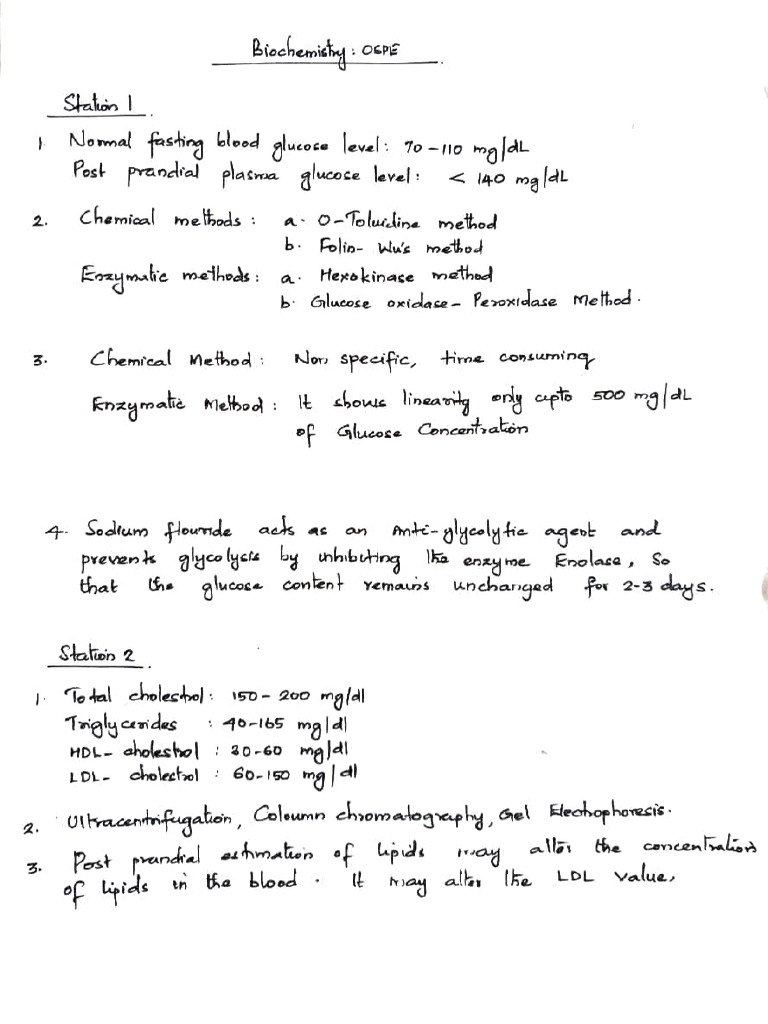 Biochemistry : OSPE
Station 1
1. Normal fasting blood glucose level : 70 - 110 mg/dL
Post prandial plasma glucose level : < 140 mg/dL
2. Chemical methods : a. O-Toluidine method
b. Folin- Wu's method
Enzymatic methods : a. Hexokinase method
b. Glucose oxidase - Peroxidase Method.
3. Chemical Method : Non specific, time consuming
Enzymatic Method : It shows linearity only upto 500 mg/dL
of Glucose Concentration
4. Sodium flouride acts as an Anti-glycolytic agent and
prevents glycolysis by inhibiting the enzyme Enolase, So
that the glucose content remains unchanged for 2-3 days.
Station 2
1. Total cholestrol : 150 - 200 mg/dl
Triglycerides : 40-165 mg/dl
HDL - cholestrol : 30-60 mg/dl
LDL - cholestrol : 60-150 mg/dl
2. Ultracentrifugation, Coloumn chromatography, Gel Electrophoresis.
3. Post prandial estimation of lipids may alter the concentration
of lipids in the blood. It may alter the LDL value,